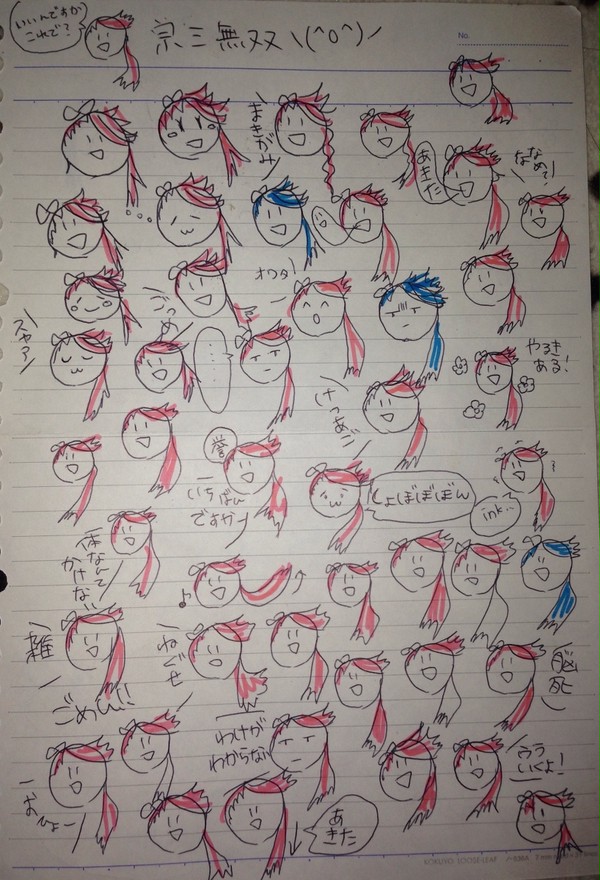 いいんですか
これで?
宗三無双＼(^o^)／
No.
まきがみ
あきた
ななめっ!
オワタ
ごつめ
スヤァ
……
やるき
ある!
けつあご
誉
いちばん
ですか
しょぼぼぼぼん
ink…
体なんて
かけない
♪
雑
ねぐせ
脳
死
ごめん!!
わけが
わからない
うう
いくよ!
あきた